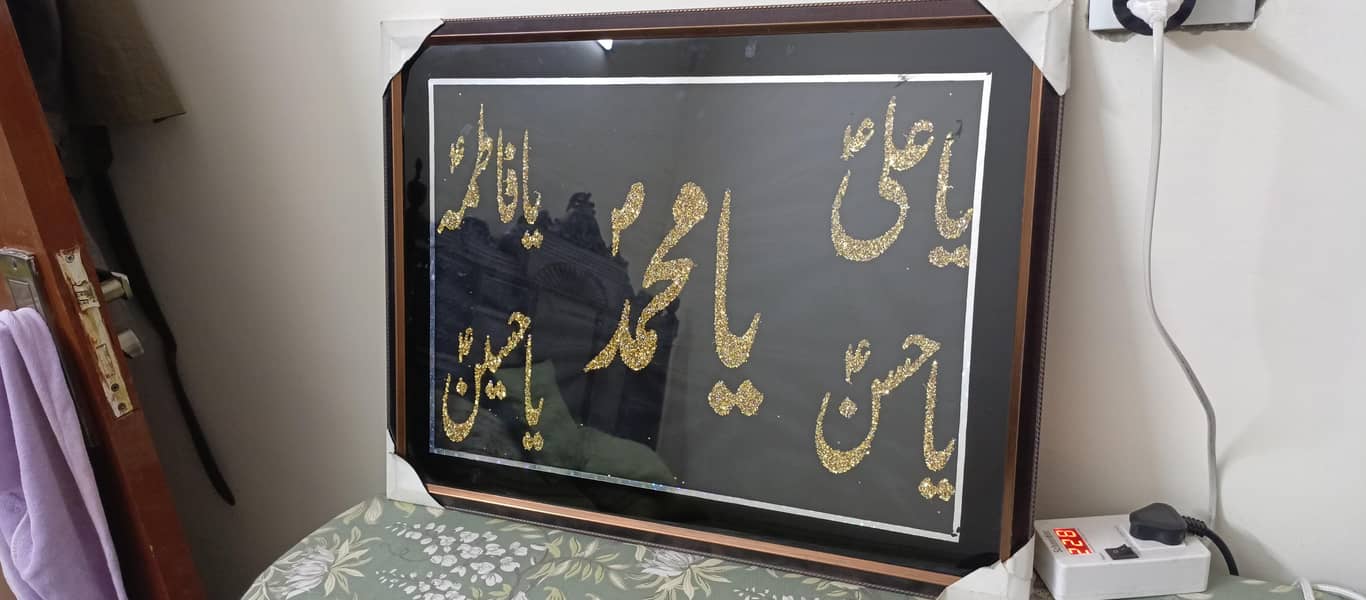 یا علیؑ
یا فاطمہؑ
یا محمدؐ
یا حسنؑ
یا حسینؑ